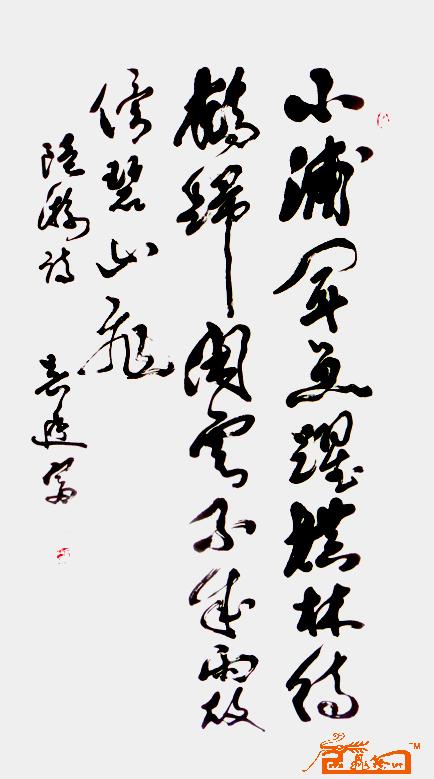 小浦聞魚躍橫林待
鶴歸閑雲不成雨故
傍碧山飛
陸游詩
TM